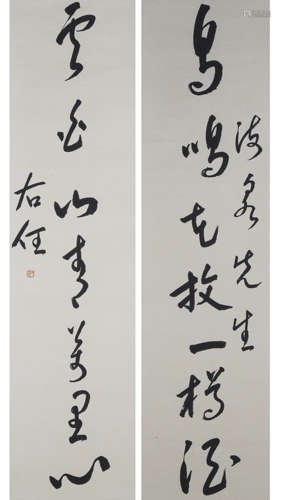 鳥鳴花放一樽酒
先生
雲白山青萬里心
右任